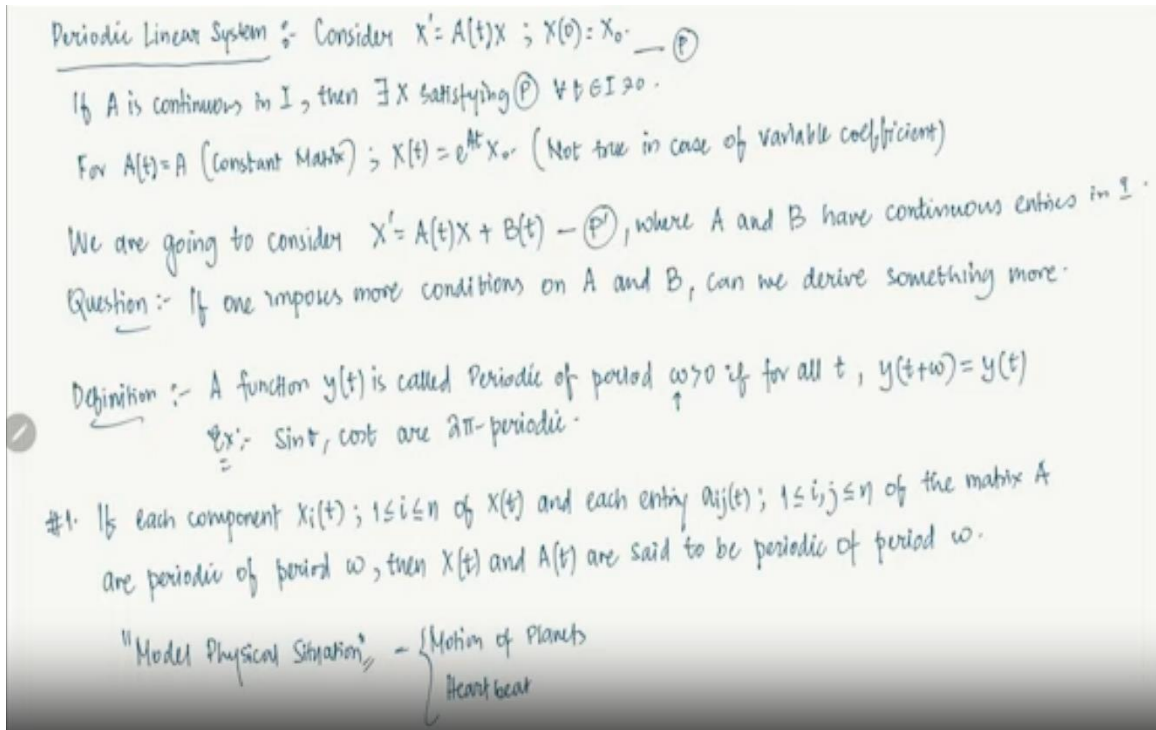 Periodic Linear System :- Consider X' = A(t)X ; X(0) = X₀. — Ⓟ
If A is continuous in I, then ∃ X satisfying Ⓟ ∀ t ∈ I ∋ 0.
For A(t) = A (Constant Matrix) ; X(t) = e^{At} X₀. (Not true in case of variable coefficient)
We are going to consider X' = A(t)X + B(t) — Ⓟ', where A and B have continuous entries in I.
Question :- If one imposes more conditions on A and B, can we derive something more.
Definition :- A function y(t) is called Periodic of period ω>0 if for all t, y(t+ω) = y(t)
↑
Ex:- Sin t, cos t are 2π-periodic.
#1. If each component Xᵢ(t) ; 1≤i≤n of X(t) and each entry aᵢⱼ(t) ; 1≤i,j≤n of the matrix A
are periodic of period ω, then X(t) and A(t) are said to be periodic of period ω.
"Model Physical Situation" - { Motion of Planets
Heart beat